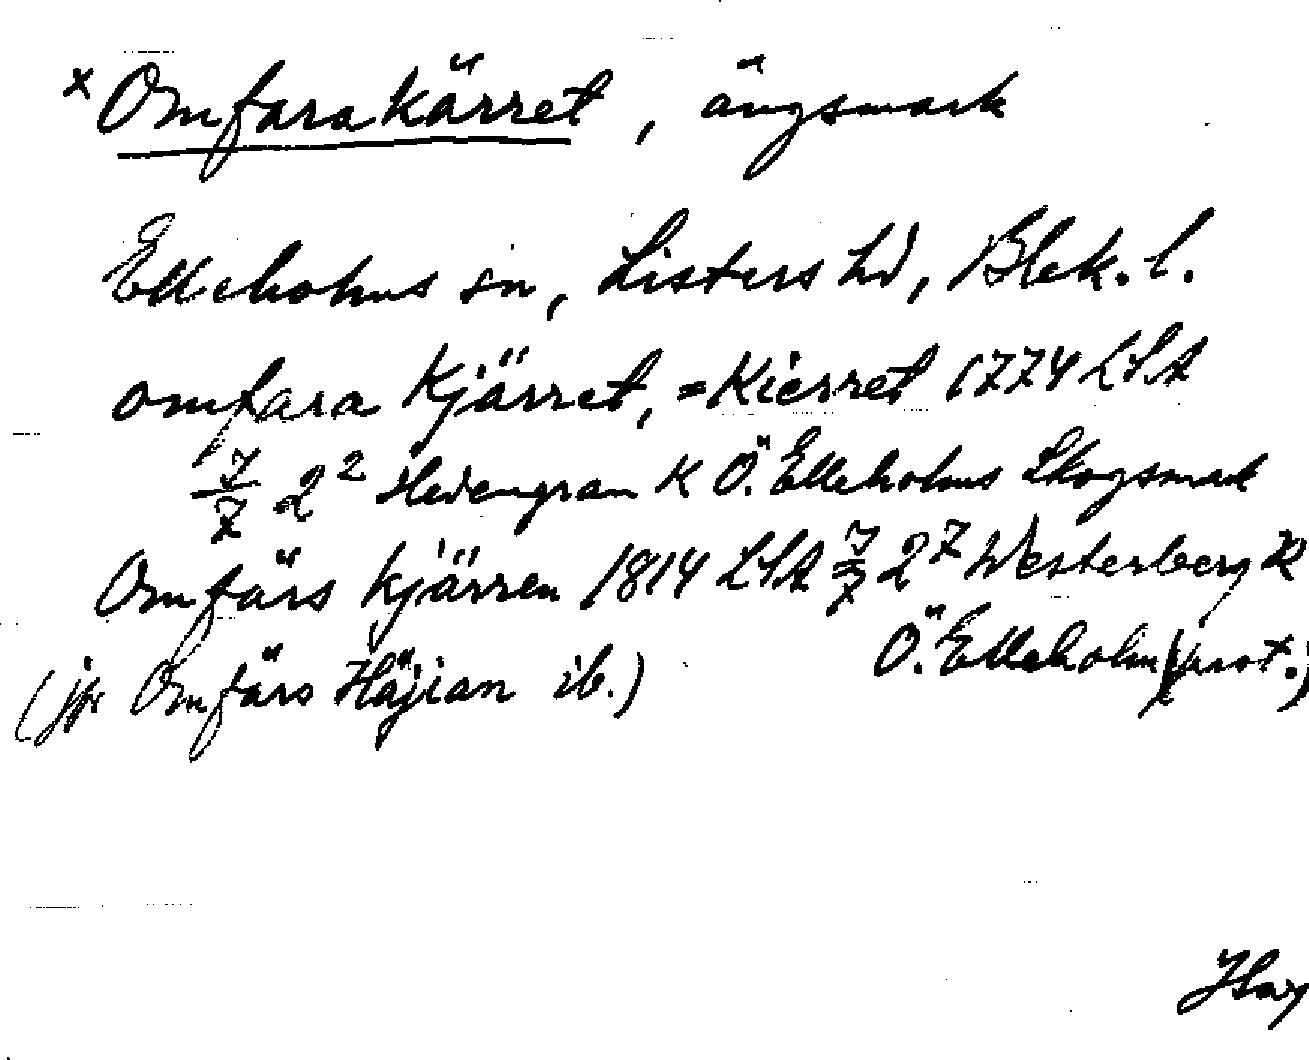 x Omfarakärret, ängsmark
Elleholms sn, Listers hd, Blek. l.
omfara Kjärret, = Kierret 1774 LSA
7/7 2² Hedengran K Ö. Elleholms Skogsmark
Omfärs kjärren 1814 LSA 7/7 2⁷ Westerberg K
Ö. Elleholm (prot.)
(jfr Omfärs Häjian ib.)